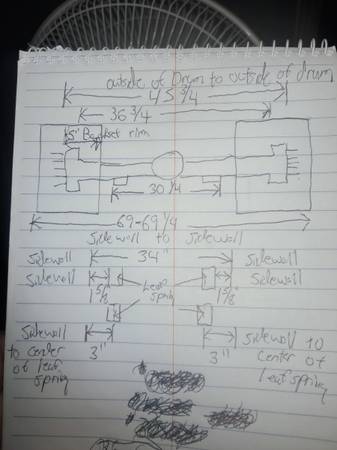 outside of Drum to outside of drum
45 3/4
36 3/4
5" Backset rim
30 1/4
69-69 1/4
Sidewall to Sidewall
Sidewall 34" Sidewall
Sidewall Leaf Sidewall
1 5/8" spring 1 5/8"
Sidewall Sidewall to
to center 3" 3" Center of
of leaf leaf spring
spring